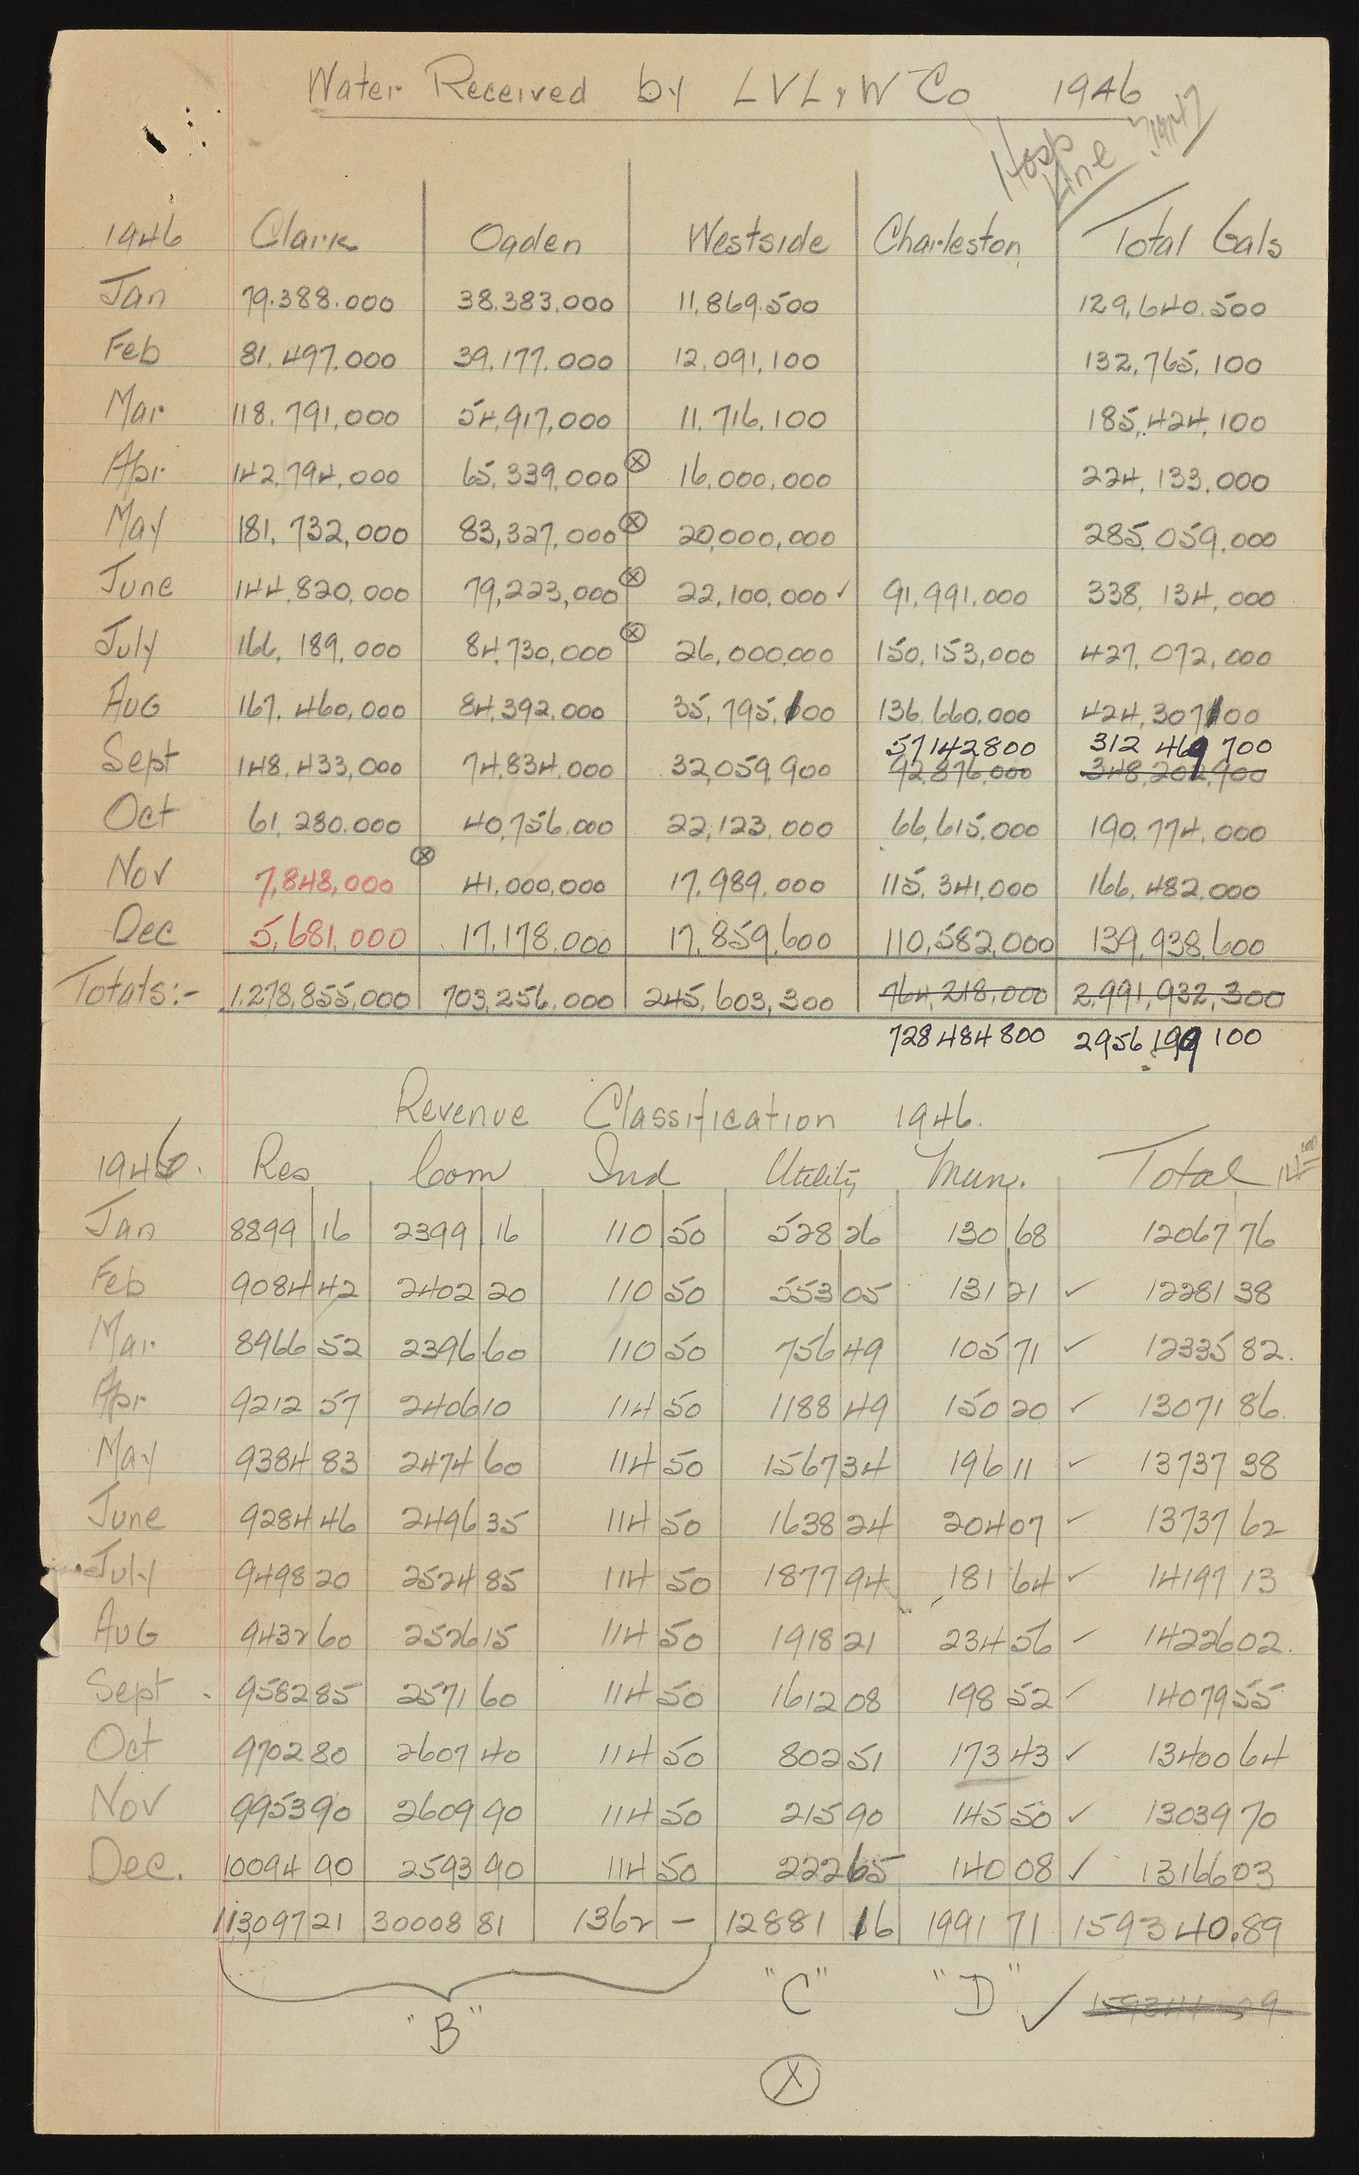 Water Received by LVL & W Co 1946
Hosp Line
1946 Clark Ogden Westside Charleston Total Gals
Jan 79.388.000 38.383.000 11,869.500 129,640.500
Feb 81.497.000 39,177.000 12,091,100 132,765,100
Mar 118,791,000 54,917,000 11,716,100 185,424,100
Apr 142,794,000 65,339,000 ⓧ 16,000,000 224,133,000
May 181,732,000 83,327,000 ⓧ 20,000,000 285,059,000
June 144,820,000 79,223,000 ⓧ 22,100,000 ✓ 91,991,000 338,134,000
July 166,189,000 84,730,000 ⓧ 26,000,000 150,153,000 427,072,000
Aug 167,460,000 84,392,000 35,795,100 136,660,000 424,307100
57142800 312 469 700
Sept 148,433,000 74,834,000 32,059,900 92,876,000 348,202,900
Oct 61,280.000 40,756.000 22,123,000 66,615,000 190,774,000
Nov 7,848,000 ⓧ 41,000,000 17,989,000 115,341,000 166,482,000
Dec 5,681,000 17,178.000 17,859,600 110,582,000 139,938,600
Totals:- 1,278,855,000 703,256,000 245,603,300 764,218,000 2,991,932,300
728484800 2956 199 100
Revenue Classification 1946.
1946. Res Com Ind Utility Mun. Total
Jan 8899 16 2399 16 110 50 528 26 130 68 12067 76
Feb 9084 42 2402 20 110 50 553 05 131 21 ✓ 12281 38
Mar 8966 52 2396 60 110 50 756 49 105 71 ✓ 12335 82.
Apr 9212 57 2406 10 114 50 1188 49 150 20 ✓ 13071 86.
May 9384 83 2474 60 114 50 1567 34 196 11 ✓ 13737 38
June 9284 46 2496 35 114 50 1638 24 204 07 ✓ 13737 62
July 9498 20 2524 85 114 50 1877 94 181 64 ✓ 14197 13
Aug 9432 60 2526 15 114 50 1918 21 234 56 ✓ 14226 02.
Sept 9582 85 2571 60 114 50 1612 08 198 52 ✓ 14079 55
Oct 9702 80 2607 40 114 50 802 51 173 43 ✓ 13400 64
Nov 9953 90 2609 90 114 50 215 90 145 50 ✓ 13039 70
Dec. 10094 90 2593 90 114 50 222 65 140 08 ✓ 13166 03
113097 21 30008 81 1362 - 12881 16 1991 71 159340.89
"B" "C" "D" ✓
ⓧ